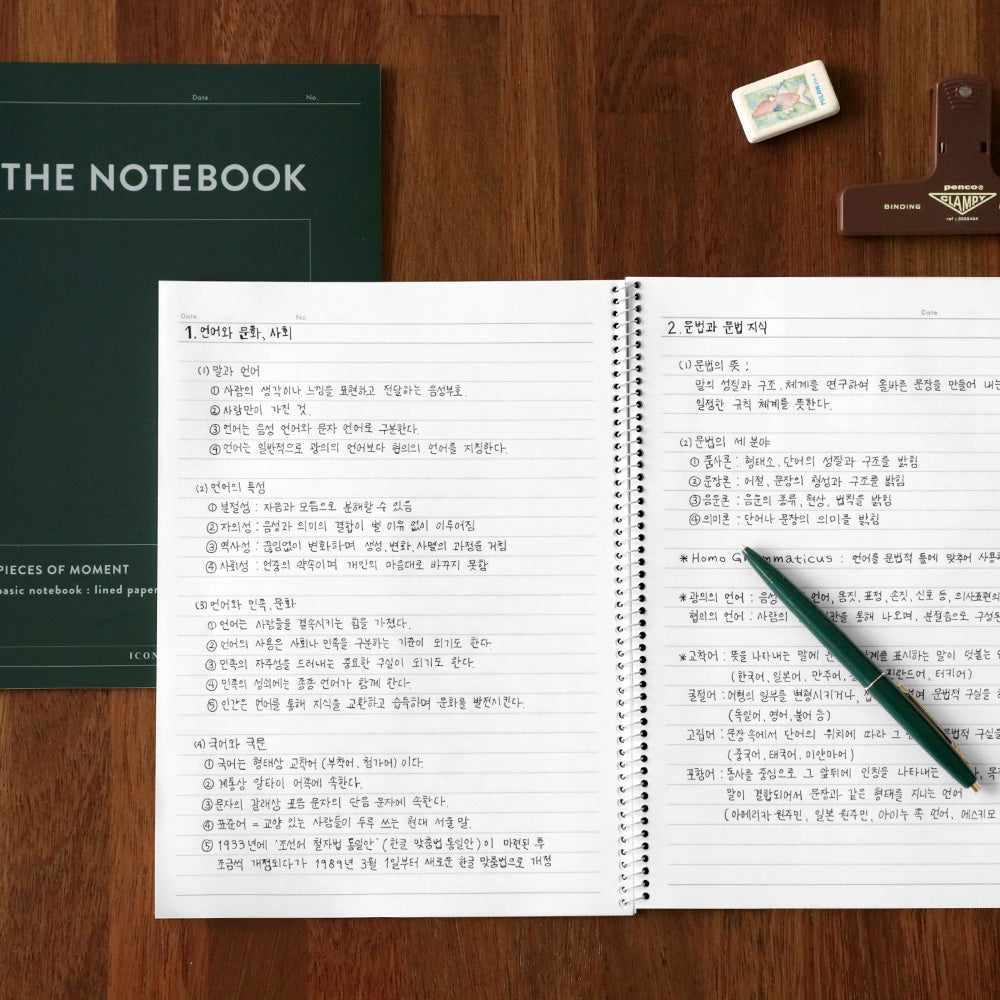 Date.
No.
THE NOTEBOOK
PIECES OF MOMENT
basic notebook : lined paper
ICON
MILAN
penco®
BINDING
CLAMPY
Date.
No.
1. 언어와 문화, 사회
(1) 말과 언어
① 사람의 생각이나 느낌을 표현하고 전달하는 음성부호.
② 사람만이 가진 것.
③ 언어는 음성 언어와 문자 언어로 구분한다.
④ 언어는 일반적으로 광의의 언어보다 협의의 언어를 지칭한다.
(2) 언어의 특성
① 분절성 : 자음과 모음으로 분해할 수 있음
② 자의성 : 음성과 의미의 결합이 별 이유 없이 이루어짐
③ 역사성 : 끊임없이 변화하며 생성, 변화, 사멸의 과정을 거침
④ 사회성 : 언중의 약속이며 개인의 마음대로 바꾸지 못함
(3) 언어와 민족, 문화
① 언어는 사람들을 결속시키는 힘을 가졌다.
② 언어의 사용은 사회나 민족을 구분하는 기준이 되기도 한다.
③ 민족의 자주성을 드러내는 중요한 구실이 되기도 한다.
④ 민족의 성쇠에는 종종 언어가 함께 한다.
⑤ 인간은 언어를 통해 지식을 교환하고 습득하며 문화를 발전시킨다.
(4) 국어와 국문
① 국어는 형태상 교착어 (부착어, 첨가어) 이다.
② 계통상 알타이 어족에 속한다.
③ 문자의 갈래상 표음 문자의 단음 문자에 속한다.
④ 표준어 = 교양 있는 사람들이 두루 쓰는 현대 서울 말.
⑤ 1933년에 '조선어 철자법 통일안' (한글 맞춤법 통일안) 이 마련된 후
조금씩 개정되다가 1989년 3월 1일부터 새로운 한글 맞춤법으로 개정
Date.
2. 문법과 문법 지식
(1) 문법의 뜻 ;
말의 성질과 구조, 체계를 연구하여 올바른 문장을 만들어 내는
일정한 규칙 체계를 뜻한다.
(2) 문법의 세 분야
① 품사론 : 형태소, 단어의 성질과 구조를 밝힘
② 문장론 : 어절, 문장의 형성과 구조를 밝힘
③ 음운론 : 음운의 종류, 현상, 법칙을 밝힘
④ 의미론 : 단어나 문장의 의미를 밝힘
* Homo Gr mmaticus : 언어를 문법적 틀에 맞추어 사용
* 광의의 언어 : 음성 언어, 몸짓, 표정, 손짓, 신호 등, 의사표현의
협의의 언어 : 사람의 통해 나오며, 분절음으로 구성
* 교착어 : 뜻을 나타내는 말에 관계를 표시하는 말이 덧붙는
(한국어, 일본어, 만주어, 핀란드어, 터키어)
굴절어 : 어형의 일부를 변형시키거나, 문법적 구실을
(독일어, 영어, 불어 등)
고립어 : 문장 속에서 단어의 위치에 따라 그 문법적 구실을
(중국어, 태국어, 미얀마어)
포함어 : 동사를 중심으로 그 앞뒤에 인칭을 나타내는
말이 결합되어서 문장과 같은 형태를 지니는 언어
(아메리카 원주민, 일본 원주민, 아이누 족 언어, 에스키모